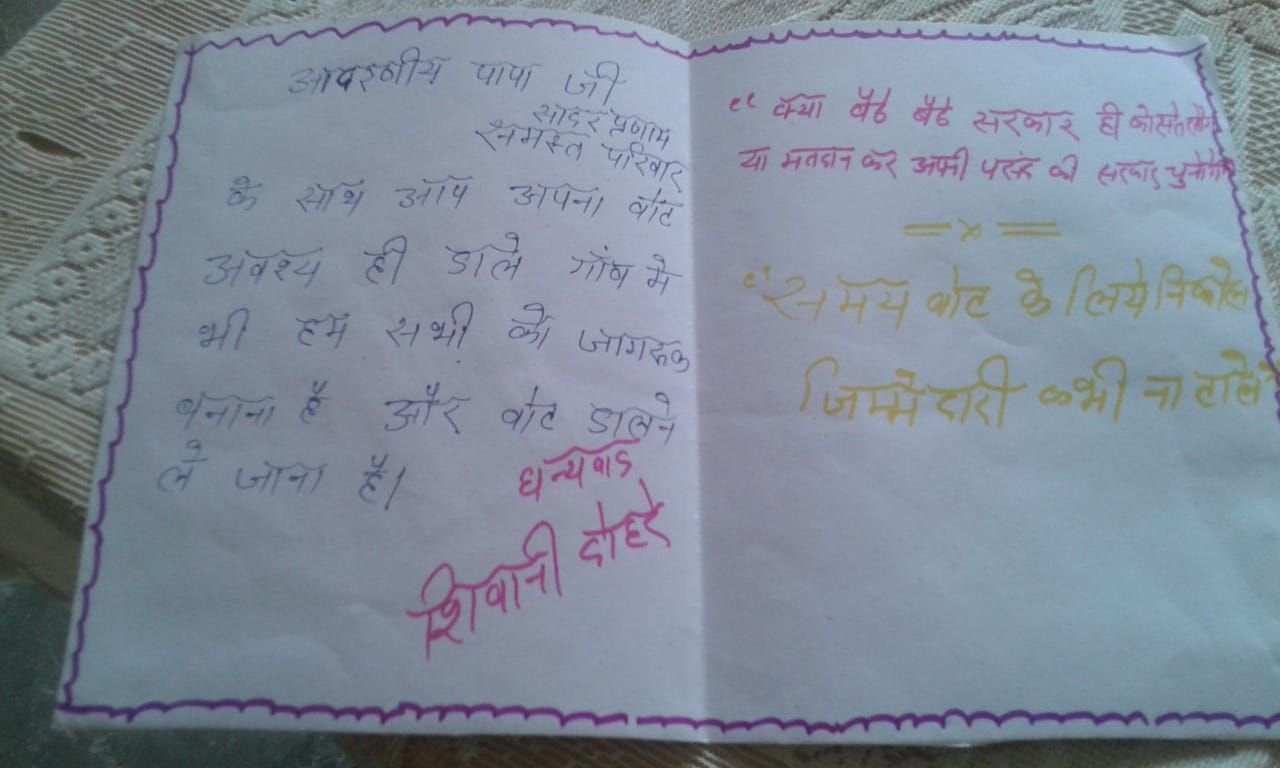 आदरणीय पापा जी
सादर प्रणाम
समस्त परिवार
के साथ आप अपना वोट
अवश्य ही डाले गाँव मे
भी हम सभी को जागरूक
बनाना है और वोट डालने
ले जाना है।
धन्यवाद
शिवानी दोहरे
“ क्या बैठे बैठे सरकार ही कोसते रहोगे
या मतदान कर अपनी पसंद की सरकार चुनोगे
= x =
“समय वोट के लिये निकाले
जिम्मेदारी कभी ना टाले